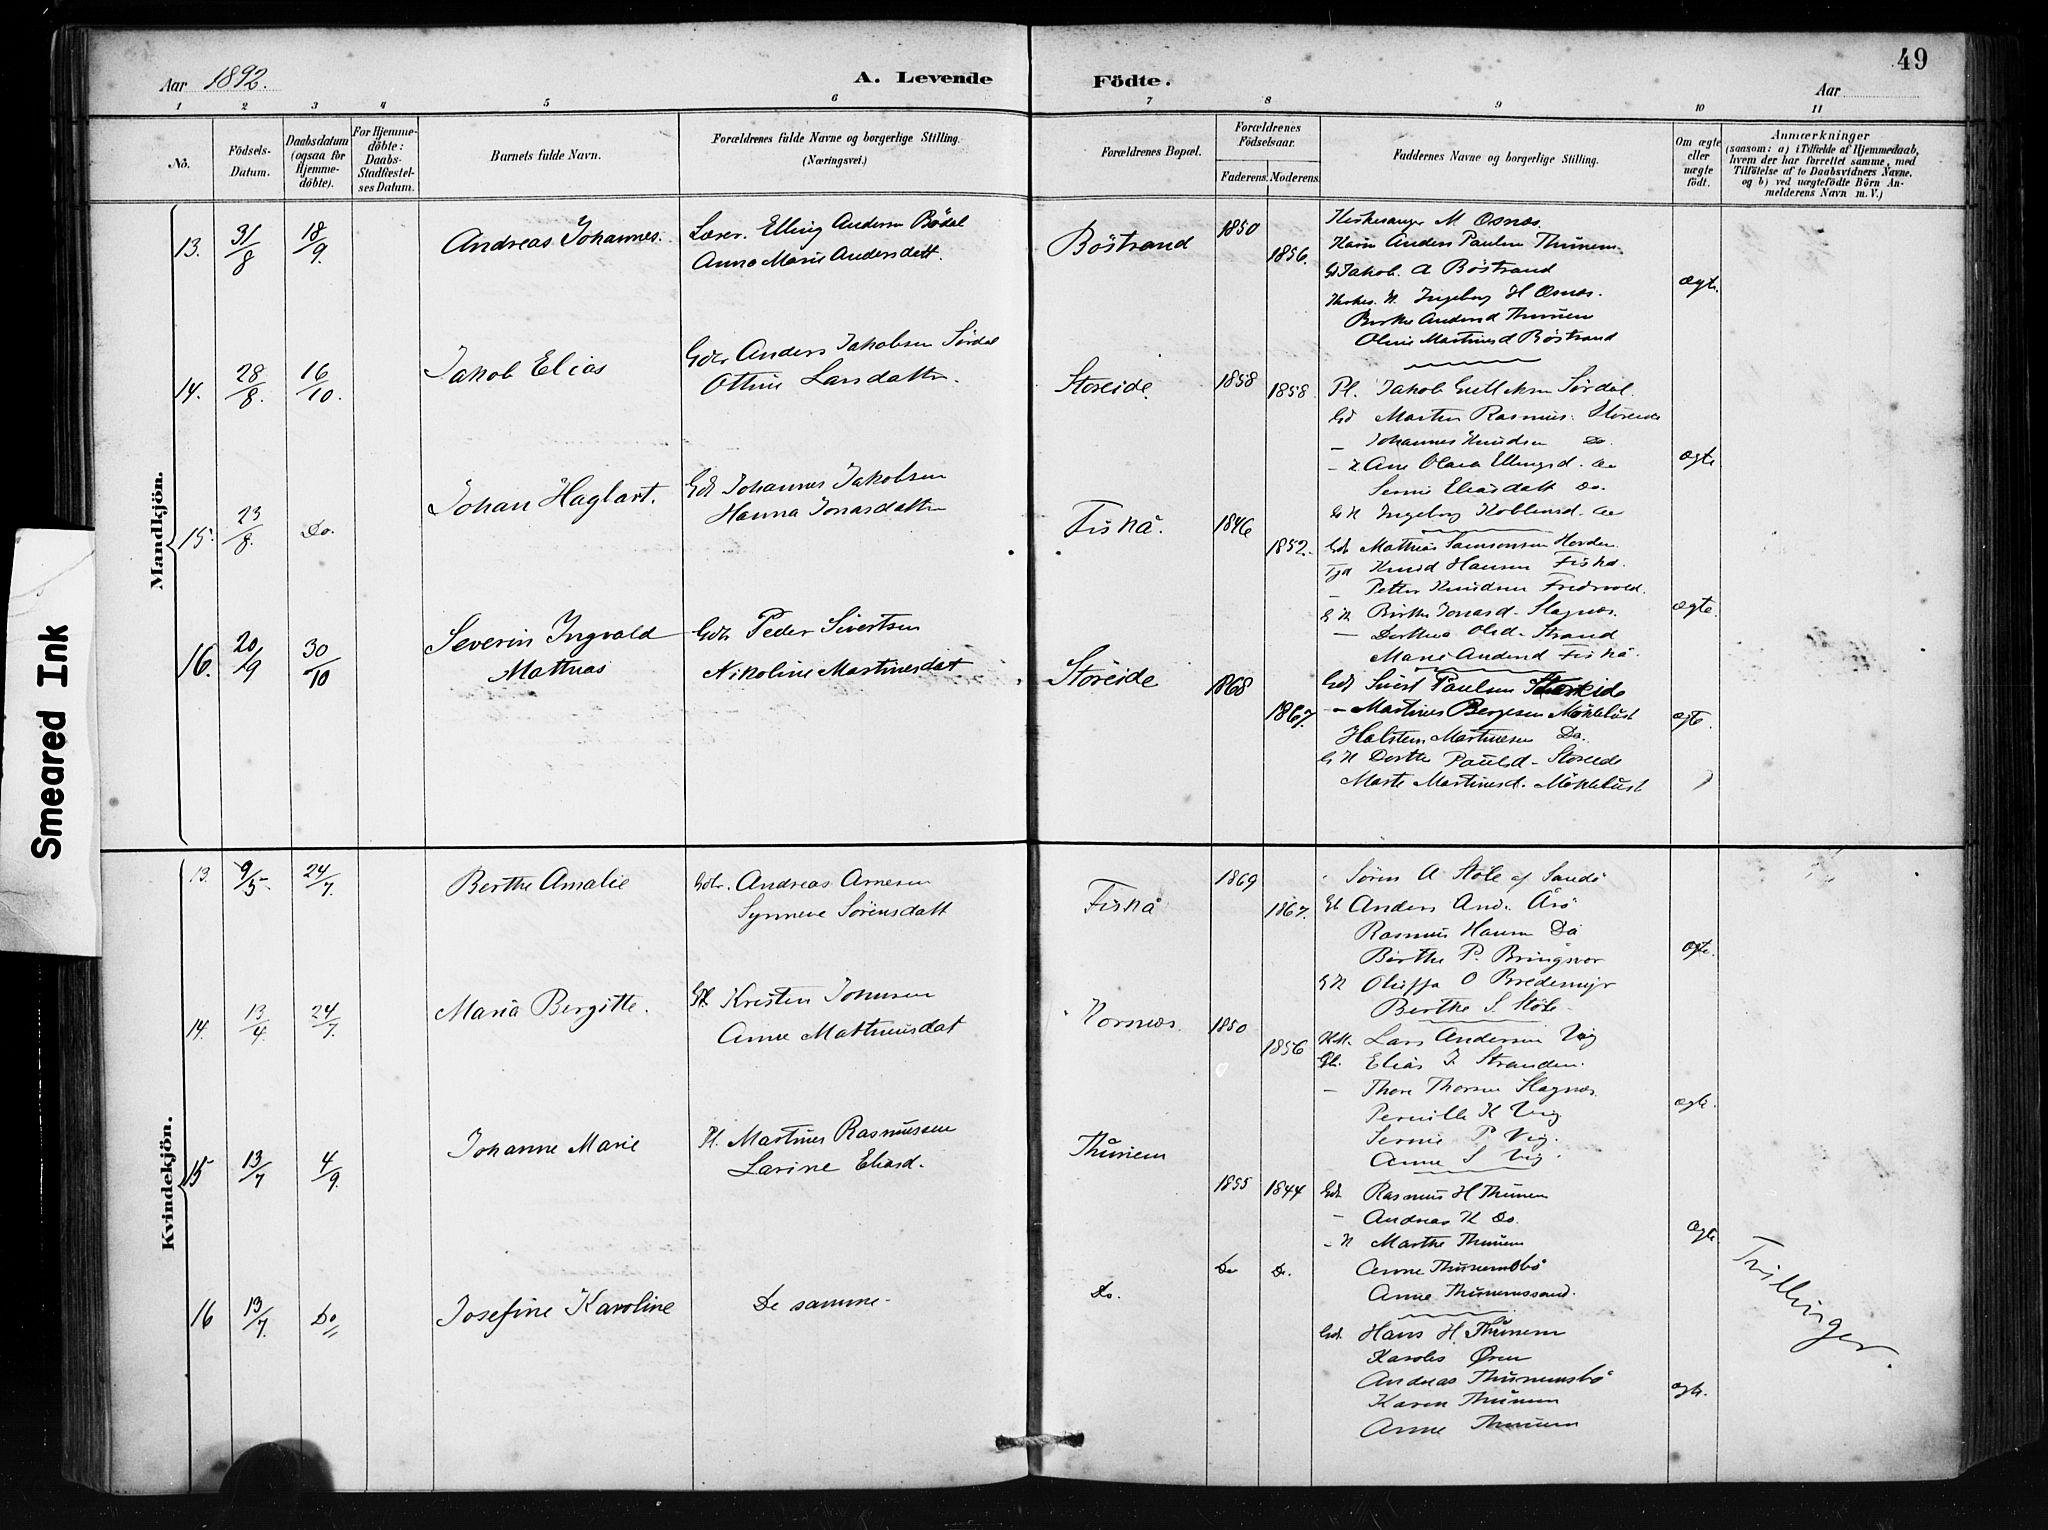 Aar 1892.
A. Levende Födte.
Aar
49
1 2 3 4 5 6 7 8 9 10 11
No.
Födsels-Datum.
Daabsdatum (ogsaa for Hjemme-döbte).
For Hjemme-döbte: Daabs-Stadfæstel-ses Datum.
Barnets fulde Navn.
Forældrenes fulde Navne og borgerlige Stilling. (Næringsvei.)
Forældrenes Bopæl.
Forældrenes Födselsaar.
Faderens. Moderens.
Faddernes Navne og borgerlige Stilling.
Om ægte eller uægte födt.
Anmærkninger (saasom: a) i Tilfælde af Hjemmedaab, hvem der har forrettet samme, med Tilföielse af to Daabsvidners Navne. og b) ved uægtefödte Börn An-melderens Navn m. V.)
Mandkjön.
13. 31/8 18/9. Andreas Johannes. Lærer. Elling Andersen Bödal
Anna Marie Andersdatt.
Böstrand 1850 1856.
Kirkesanger M Osnæs.
Anders Paulsen Thunem
Jakob. A Böstrand
Ingeborg H Osnæs.
Berthe Andersd Thunem
Oline Martinusd Böstrand
ægte.
14. 28/8. 16/10. Jakob Elias Gdbr Anders Jakobsen Sördal
Ottine Larsdatter.
Storeide. 1858 1858.
Pl. Jakob Sördal.
Gd Martin Rasmus. Storeide
- Johannes Knudsen Do.
- K. Ane Olava Ellingsd.
Sernie Eliasdatt Do.
G K Ingeborg
ægte
15. 23/8. Do. Johan Hagbart. Gdb Johannes Jakobsen
Hanna Jonasdatter
Fiskå. 1846 1852.
Gdb Mathias Samsonsen
Knud Hansen Fiskå.
- Petter Knudsen
G K Birthe Jonasd. Slagnæs.
- Dorthea Olsd. Strand
Marie Andersd Fiskå.
ægte.
16. 20/9 30/10 Severin Ingvald Mathias Gdbr Peder Sivertsen
Nikoline Martinusdat
Storeide 1868 1867.
Gdb Sivert Paulsen Storeide
- Martinus Bergesen Möklebust
Halstein Martinusen Do.
G K Dorthe Paulsd. Storeide
Marte Martinusd. Möklebust
ægte.
Kvindekjön.
13. 9/5. 24/7. Berthe Amalie Gdbr. Andreas Arnesen
Synneve Sörensdatt
Fiskå 1869 1867.
Sören A Störe af Sandö
Anders And. Årö
Rasmus Hansen Do
Berthe P. Bringsvor
G K Oluffa O Bredemyr
Berthe S
ægte.
14. 13/4. 24/7. Maria Bergitte. Kristen Johnsen
Anne Mathiasdat
Hornæs. 1850 1856
Lars Andersen Vig
Elias J Stranden.
- Thore Thorsen Slagnæs.
Pernille K Vig
Sernie P. Vig.
Anne S Vig.
ægte.
15 13/7 4/9. Johanne Marie Pl. Martinus Rasmussen
Larine Eliasd.
Thunem 1855 1844
Gdb. Rasmus H Thunem
- Andreas K Do.
- K Marthe Thunem
Anne Thunemsbö
Anne Thunemssand.
ægte
16 13/7. Do Josefine Karoline De samme
Do. Do Do.
Gdb. Hans H. Thunem
Karoles Øren
Andreas Thunemsbö
Karen Thunem
Anne Thunem
ægte.
Tvillinger.
Smeared Ink